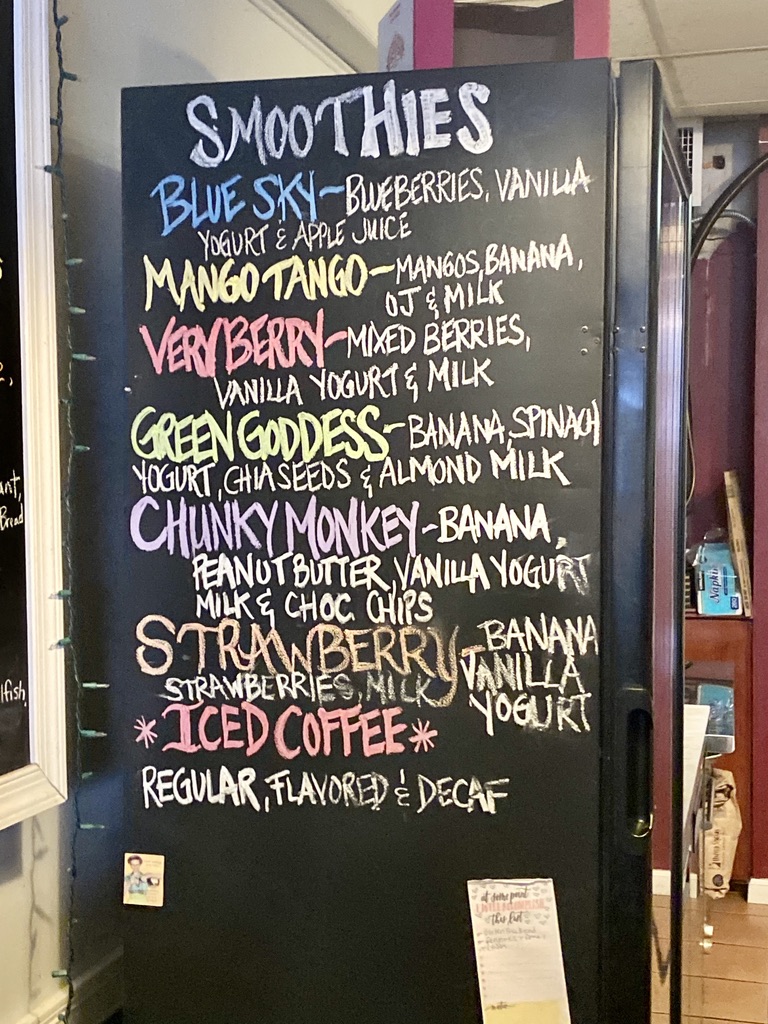 SMOOTHIES
BLUE SKY~BLUEBERRIES, VANILLA
YOGURT & APPLE JUICE
MANGO TANGO~MANGOS, BANANA,
OJ & MILK
VERY BERRY~MIXED BERRIES,
VANILLA YOGURT & MILK
GREEN GODDESS~BANANA, SPINACH
YOGURT, CHIA SEEDS & ALMOND MILK
CHUNKY MONKEY-BANANA,
PEANUT BUTTER, VANILLA YOGURT
MILK & CHOC CHIPS
STRAWBERRY-BANANA
STRAWBERRIES, MILK VANILLA
YOGURT
*ICED COFFEE*
REGULAR, FLAVORED & DECAF
at some point
this list
Napkins
Bread
lfish,